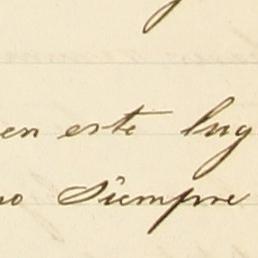 en este lug
no siempre